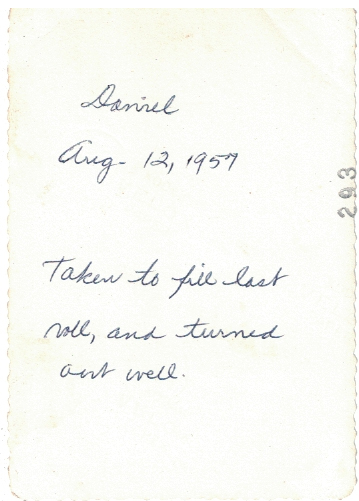 Daniel
Aug- 12, 1957
293
Taken to fill last
roll, and turned
out well.